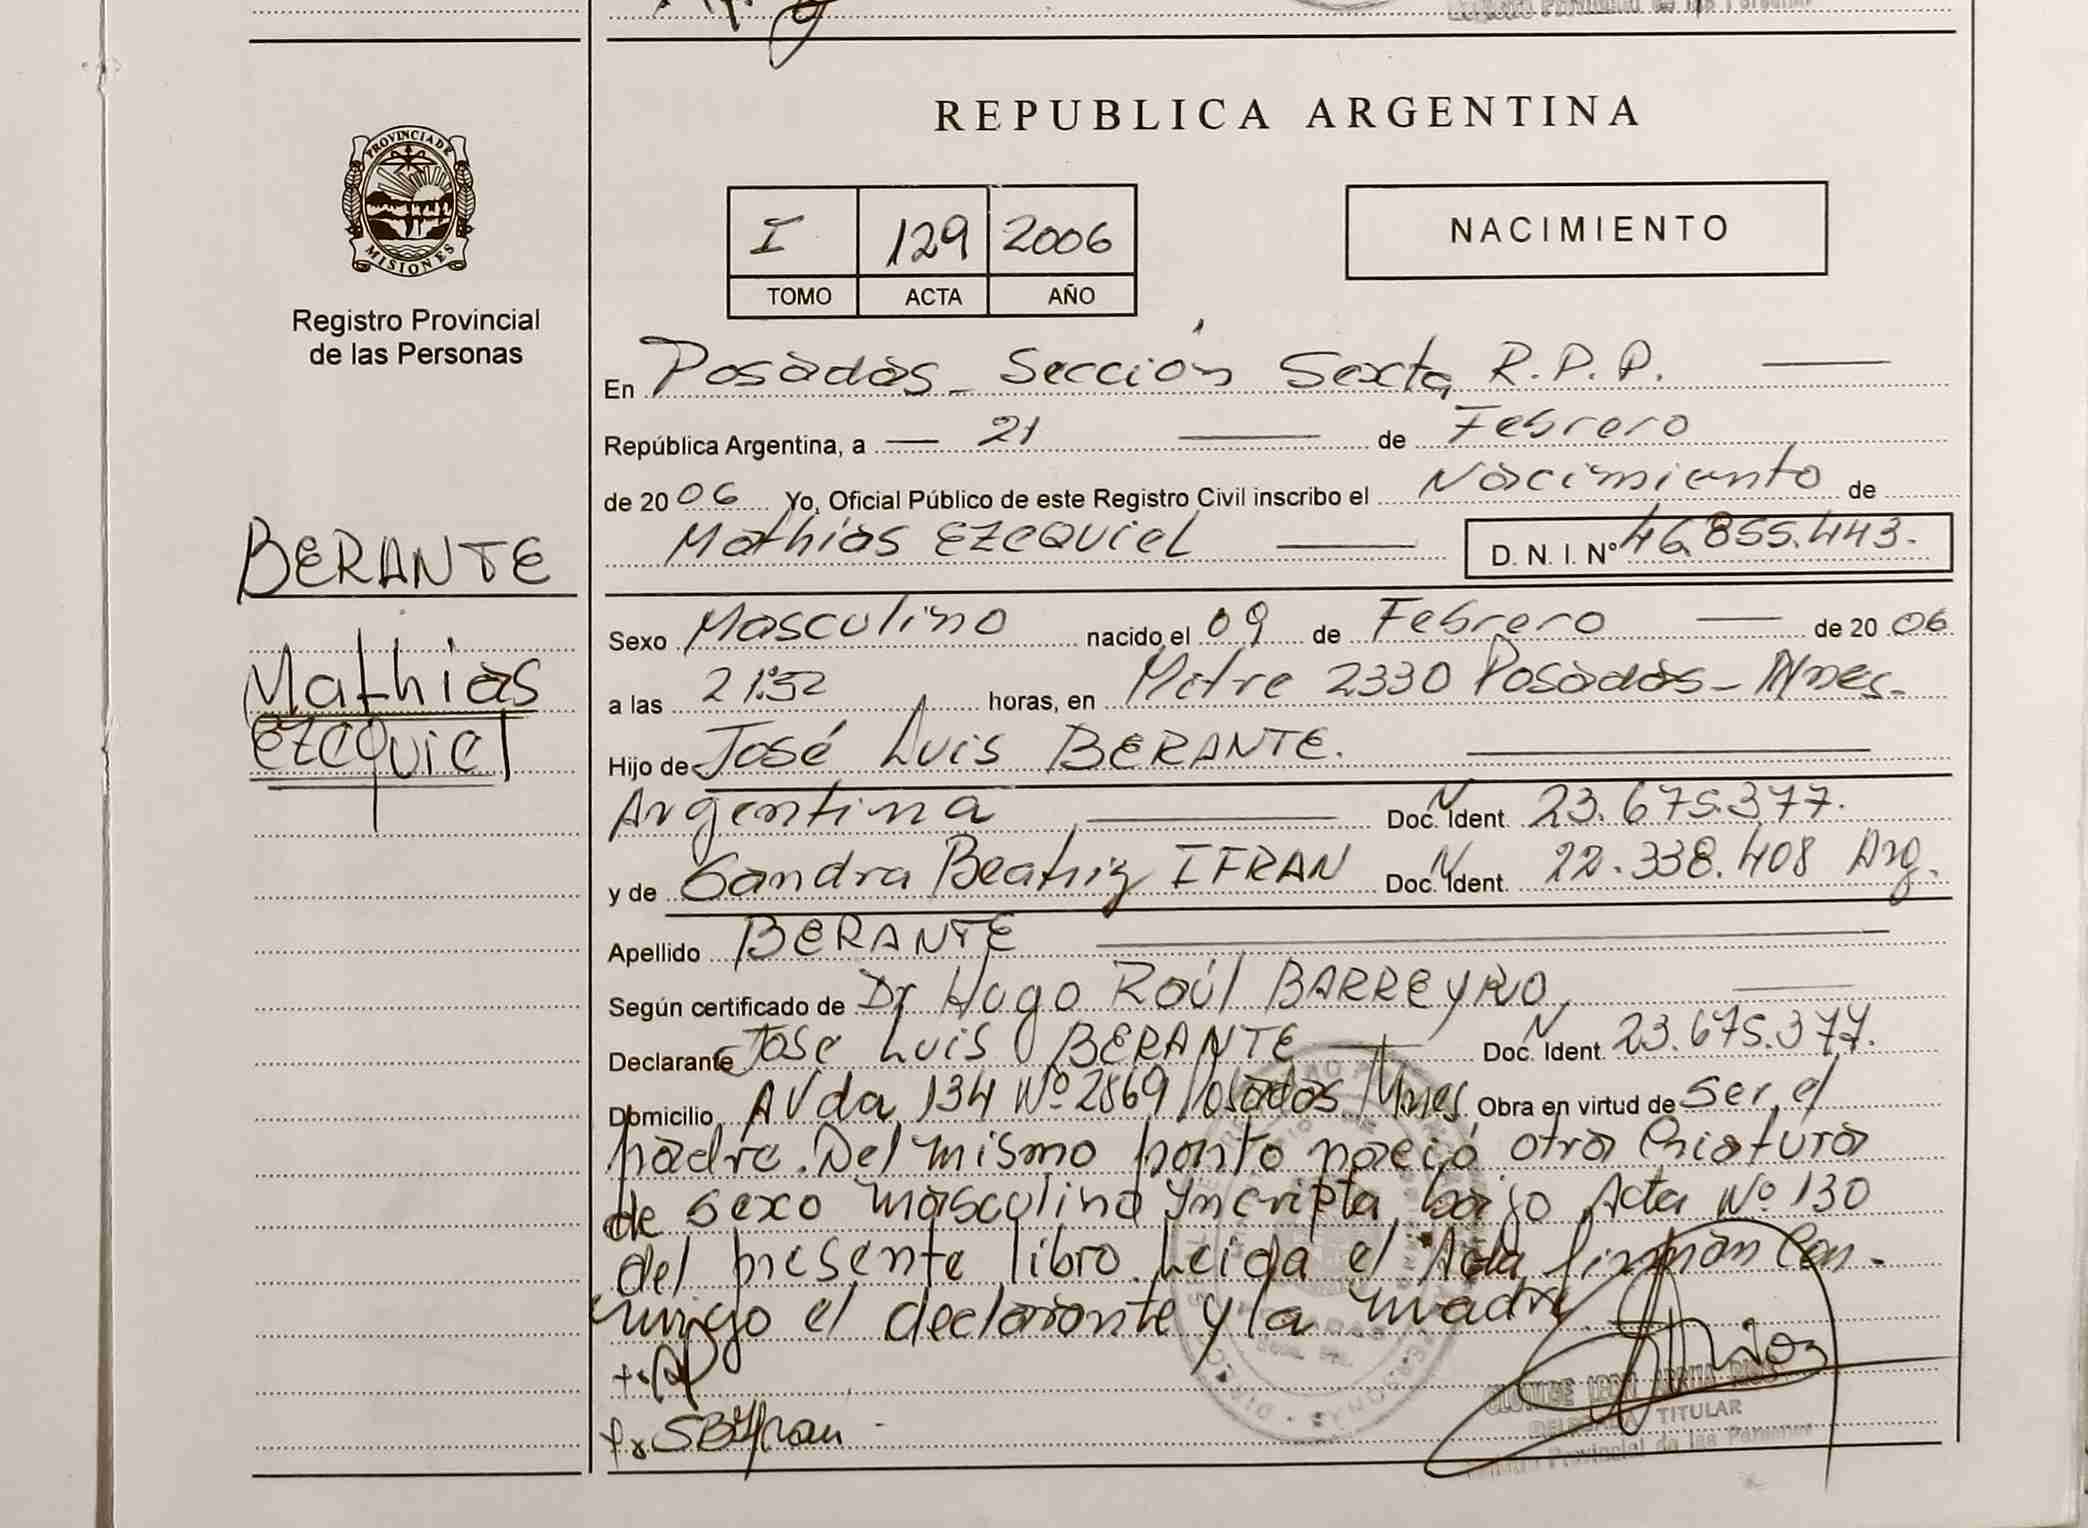 REPUBLICA ARGENTINA
PROVINCIA DE
MISIONES
Registro Provincial
de las Personas
I 129 2006
TOMO ACTA AÑO
NACIMIENTO
En Posadas - Sección Sexta, R.P.P.
República Argentina, a 21 de Febrero
de 2006 Yo, Oficial Público de este Registro Civil inscribo el Nacimiento de
Mathias EZEQUIEL D. N. I. Nº 46.855.443.
BERANTE
Mathias
EZEQUIEL
Sexo Masculino nacido el 09 de Febrero de 2006
a las 21:52 horas, en Mitre 2330 Posadas - Mnes.
Hijo de José Luis BERANTE.
Argentina Doc. N Ident. 23.675.377.
y de Sandra Beatriz IFRAN Doc. N Ident. 22.338.408 Arg.
Apellido BERANTE
Según certificado de Dr Hugo Raúl BARREYRO,
Declarante José Luis BERANTE Doc. N Ident. 23.675.377.
Domicilio AVda 134 Nº 2869 Posadas Mnes, Obra en virtud de ser el
padre. Del mismo parto nació otra Criatura
de sexo masculino Yncripta bajo Acta Nº 130
del presente libro. Leida el Acta firman Con-
migo el declarante y la madre
SBIfran
TITULAR
Provincial de las Personas